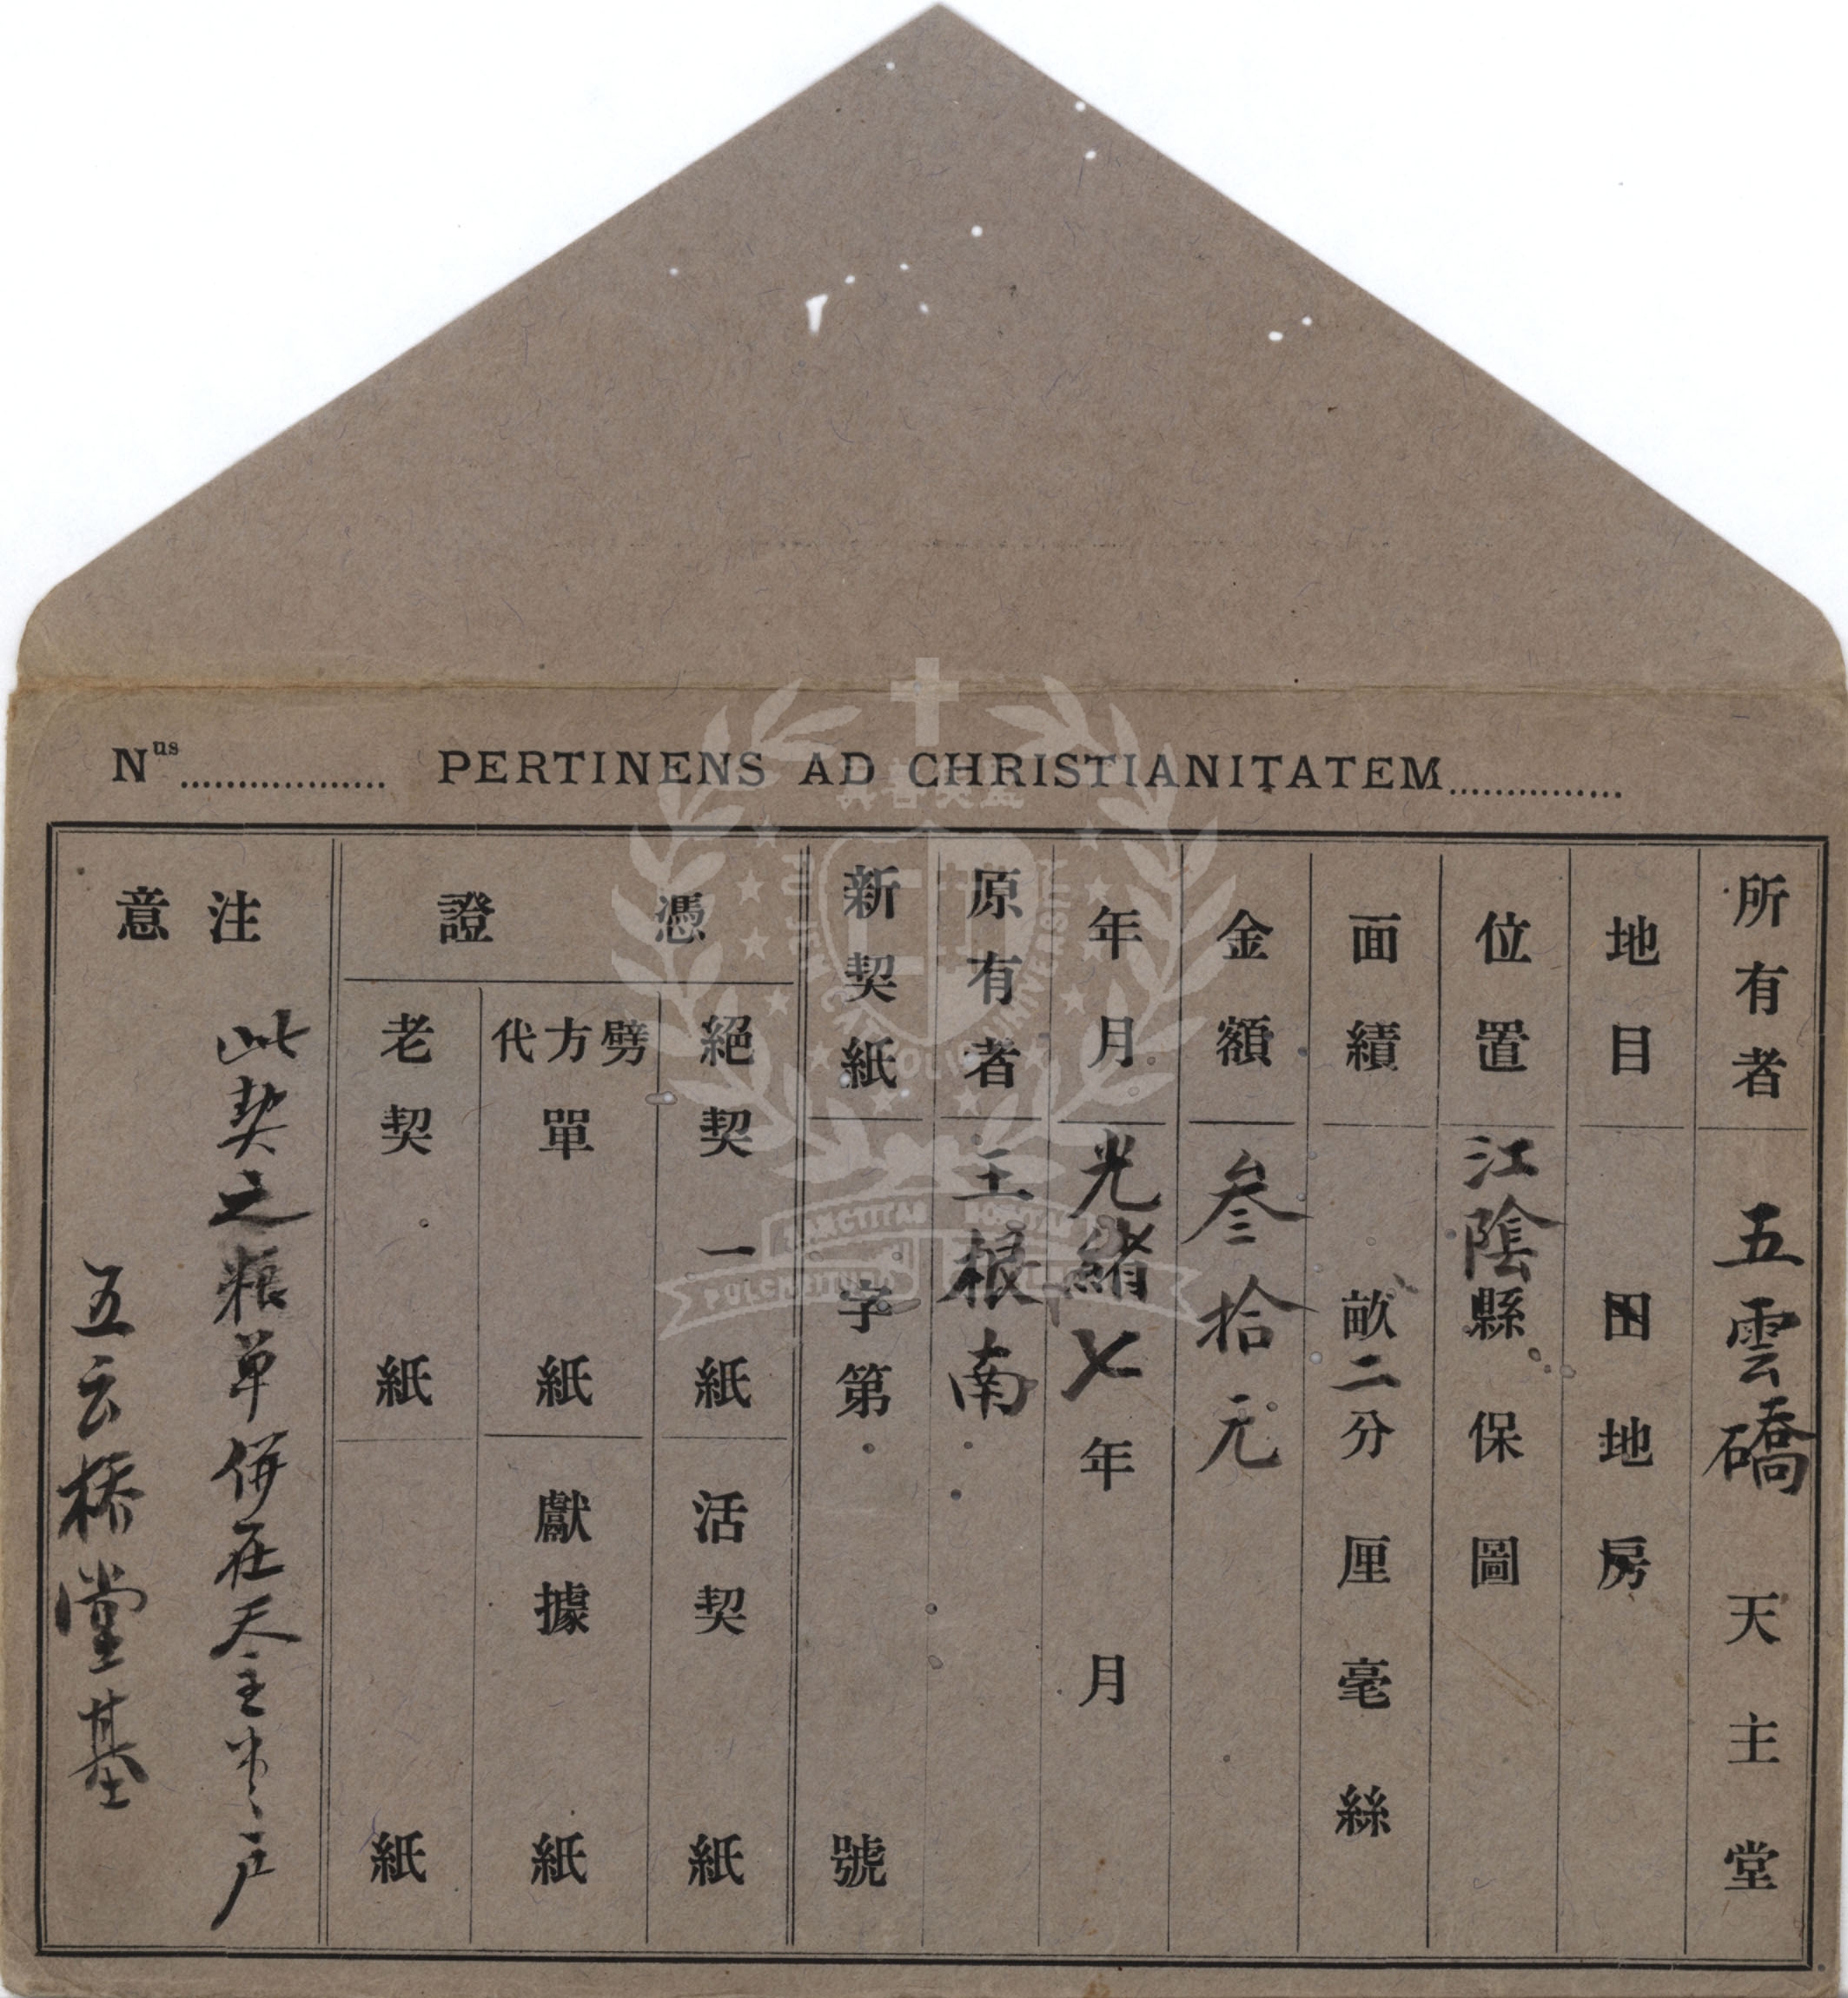 Nus.................. PERTINENS AD CHRISTIANITATEM...............
所有者 五雲礄 天主堂
地目 田 地 房
位置 江陰縣 保 圖
面績 畝二分 厘 毫 絲
金額 叁拾元
年月 光緒七年 月
原有者 王根南
新契紙 字第 號
憑證
絕契 一紙
活契 紙
劈方代單 紙
獻據 紙
老契 紙
紙
注意
此契之粮单併在天主堂户
五云桥堂基